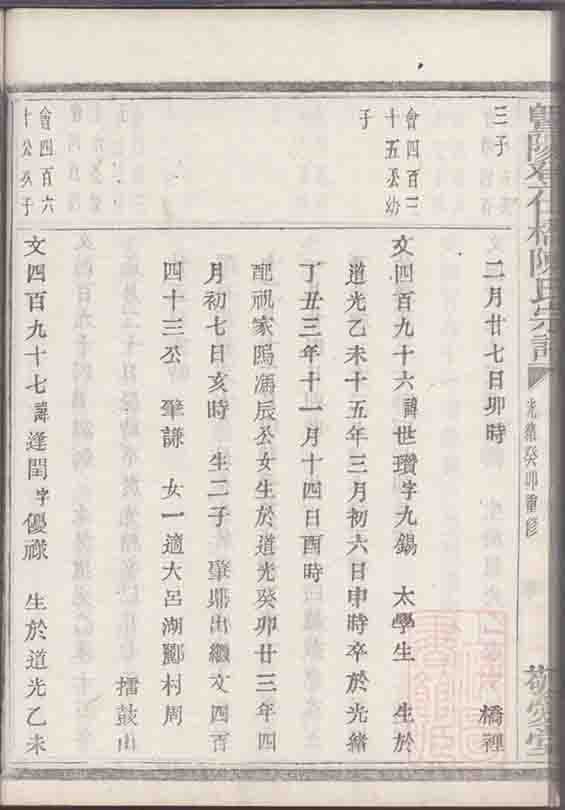 暨陽孝仁橋陳氏宗譜
光緒癸卯重修
敬愛堂
三子
二月廿七日卯時
橋裡
會四百二
十五公幼
子
文四百九十六諱世瓚字九錫 太學生 生於
道光乙未十五年三月初六日申時卒於光緒
丁丑三年十一月十四日酉時
配祝家塢馮辰公女生於道光癸卯廿三年四
月初七日亥時 生二子 肇鼎出繼文四百
四十三公 肇謙 女一適大呂湖酈村周
擂鼓山
會四百六
十公次子
文四百九十七諱逢閏字優祿 生於道光乙未